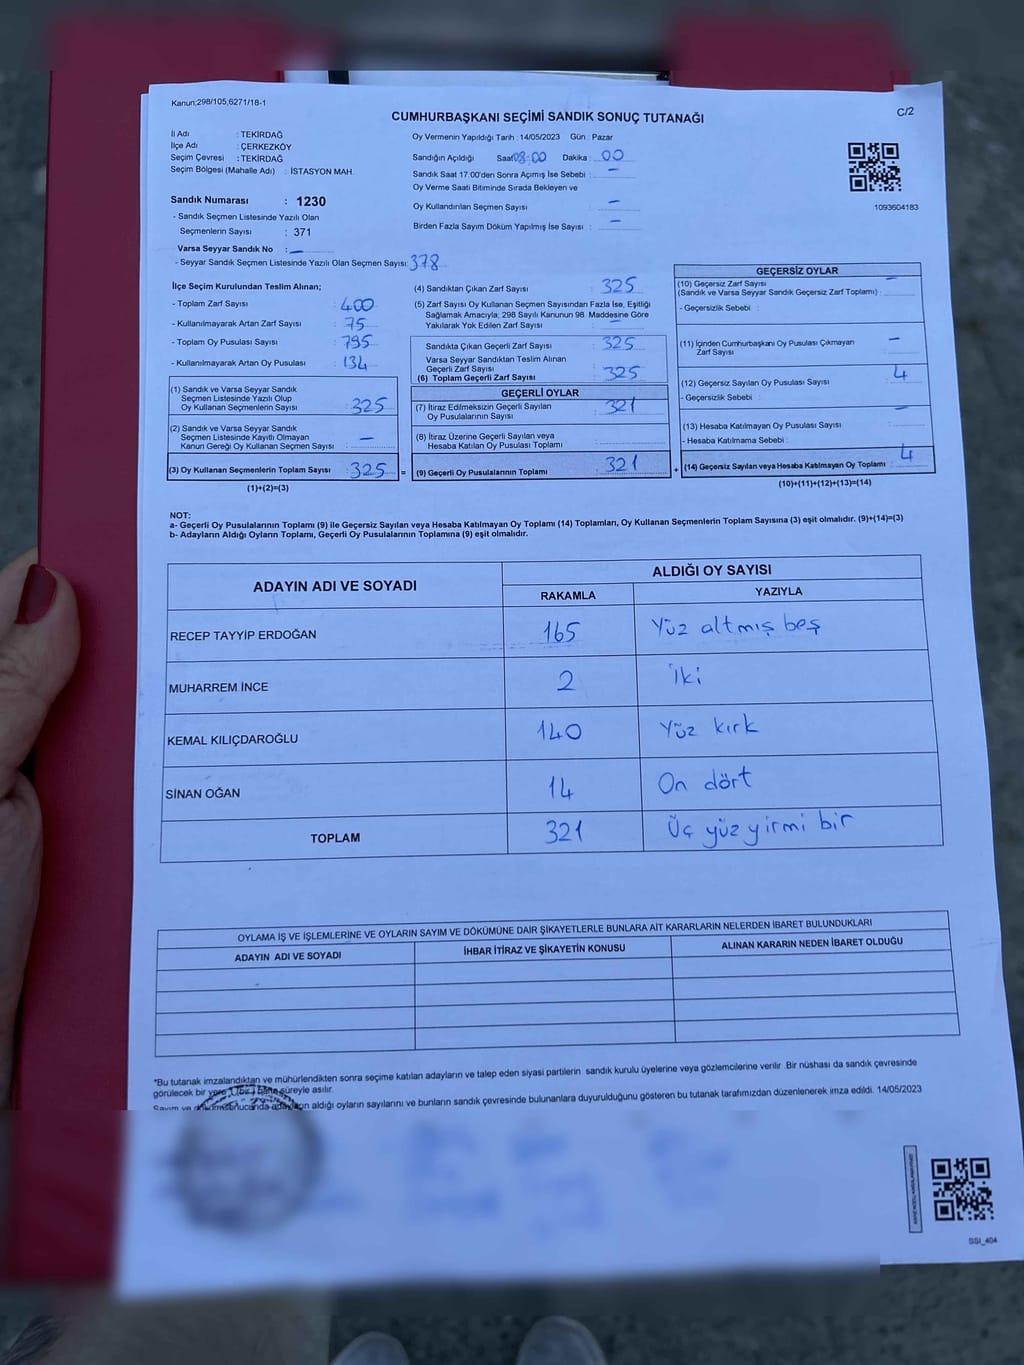 Kanun:298/105,6271/18-1
C/2
CUMHURBAŞKANI SEÇİMİ SANDIK SONUÇ TUTANAĞI
İl Adı : TEKİRDAĞ
İlçe Adı : ÇERKEZKÖY
Seçim Çevresi : TEKİRDAĞ
Seçim Bölgesi (Mahalle Adı) : İSTASYON MAH.
Sandık Numarası : 1230
- Sandık Seçmen Listesinde Yazılı Olan
Seçmenlerin Sayısı : 371
Varsa Seyyar Sandık No : —
- Seyyar Sandık Seçmen Listesinde Yazılı Olan Seçmen Sayısı: 378
Oy Vermenin Yapıldığı Tarih : 14/05/2023 Gün : Pazar
Sandığın Açıldığı Saat 08:00 Dakika : 00
Sandık Saat 17.00'den Sonra Açımış İse Sebebi : —
Oy Verme Saati Bitiminde Sırada Bekleyen ve
Oy Kullandırılan Seçmen Sayısı —
Birden Fazla Sayım Döküm Yapılmış İse Sayısı : —
1093604183
İlçe Seçim Kurulundan Teslim Alınan;
- Toplam Zarf Sayısı : 400
- Kullanılmayarak Artan Zarf Sayısı : 75
- Toplam Oy Pusulası Sayısı : 795
- Kullanılmayarak Artan Oy Pusulası : 134
(1) Sandık ve Varsa Seyyar Sandık
Seçmen Listesinde Yazılı Olup
Oy Kullanan Seçmenlerin Sayısı : 325
(2) Sandık ve Varsa Seyyar Sandık
Seçmen Listesinde Kayıtlı Olmayan
Kanun Gereği Oy Kullanan Seçmen Sayısı : —
(3) Oy Kullanan Seçmenlerin Toplam Sayısı : 325 =
(1)+(2)=(3)
(4) Sandıktan Çıkan Zarf Sayısı : 325
(5) Zarf Sayısı Oy Kullanan Seçmen Sayısından Fazla İse, Eşitliği
Sağlamak Amacıyla; 298 Sayılı Kanunun 98. Maddesine Göre
Yakılarak Yok Edilen Zarf Sayısı : —
Sandıkta Çıkan Geçerli Zarf Sayısı : 325
Varsa Seyyar Sandıktan Teslim Alınan
Geçerli Zarf Sayısı :
(6) Toplam Geçerli Zarf Sayısı : 325
GEÇERLİ OYLAR
(7) İtiraz Edilmeksizin Geçerli Sayılan
Oy Pusulalarının Sayısı : 321
(8) İtiraz Üzerine Geçerli Sayılan veya
Hesaba Katılan Oy Pusulası Toplamı :
(9) Geçerli Oy Pusulalarının Toplamı : 321 +
GEÇERSİZ OYLAR
(10) Geçersiz Zarf Sayısı —
(Sandık ve Varsa Seyyar Sandık Geçersiz Zarf Toplamı) :
- Geçersizlik Sebebi :
(11) İçinden Cumhurbaşkanı Oy Pusulası Çıkmayan
Zarf Sayısı : —
(12) Geçersiz Sayılan Oy Pusulası Sayısı : 4
- Geçersizlik Sebebi :
(13) Hesaba Katılmayan Oy Pusulası Sayısı : —
- Hesaba Katılmama Sebebi :
(14) Geçersiz Sayılan veya Hesaba Katılmayan Oy Toplamı : 4
(10)+(11)+(12)+(13)=(14)
NOT:
a- Geçerli Oy Pusulalarının Toplamı (9) ile Geçersiz Sayılan veya Hesaba Katılmayan Oy Toplamı (14) Toplamları, Oy Kullanan Seçmenlerin Toplam Sayısına (3) eşit olmalıdır. (9)+(14)=(3)
b- Adayların Aldığı Oyların Toplamı, Geçerli Oy Pusulalarının Toplamına (9) eşit olmalıdır.
ADAYIN ADI VE SOYADI
ALDIĞI OY SAYISI
RAKAMLA YAZIYLA
RECEP TAYYİP ERDOĞAN 165 Yüz altmış beş
MUHARREM İNCE 2 İki
KEMAL KILIÇDAROĞLU 140 Yüz kırk
SİNAN OĞAN 14 On dört
TOPLAM 321 Üç yüz yirmi bir
OYLAMA İŞ VE İŞLEMLERİNE VE OYLARIN SAYIM VE DÖKÜMÜNE DAİR ŞİKAYETLERLE BUNLARA AİT KARARLARIN NELERDEN İBARET BULUNDUKLARI
ADAYIN ADI VE SOYADI İHBAR İTİRAZ VE ŞİKAYETİN KONUSU ALINAN KARARIN NEDEN İBARET OLDUĞU
*Bu tutanak imzalandıktan ve mühürlendikten sonra seçime katılan adayların ve talep eden siyasi partilerin sandık kurulu üyelerine veya gözlemcilerine verilir. Bir nüshası da sandık çevresinde
görülecek bir yere 1 (bir) hafta süreyle asılır.
Sayım ve dökümü sonucunda adayların aldığı oyların sayılarını ve bunların sandık çevresinde bulunanlara duyurulduğunu gösteren bu tutanak tarafımızdan düzenlenerek imza edildi. 14/05/2023
SSI_404